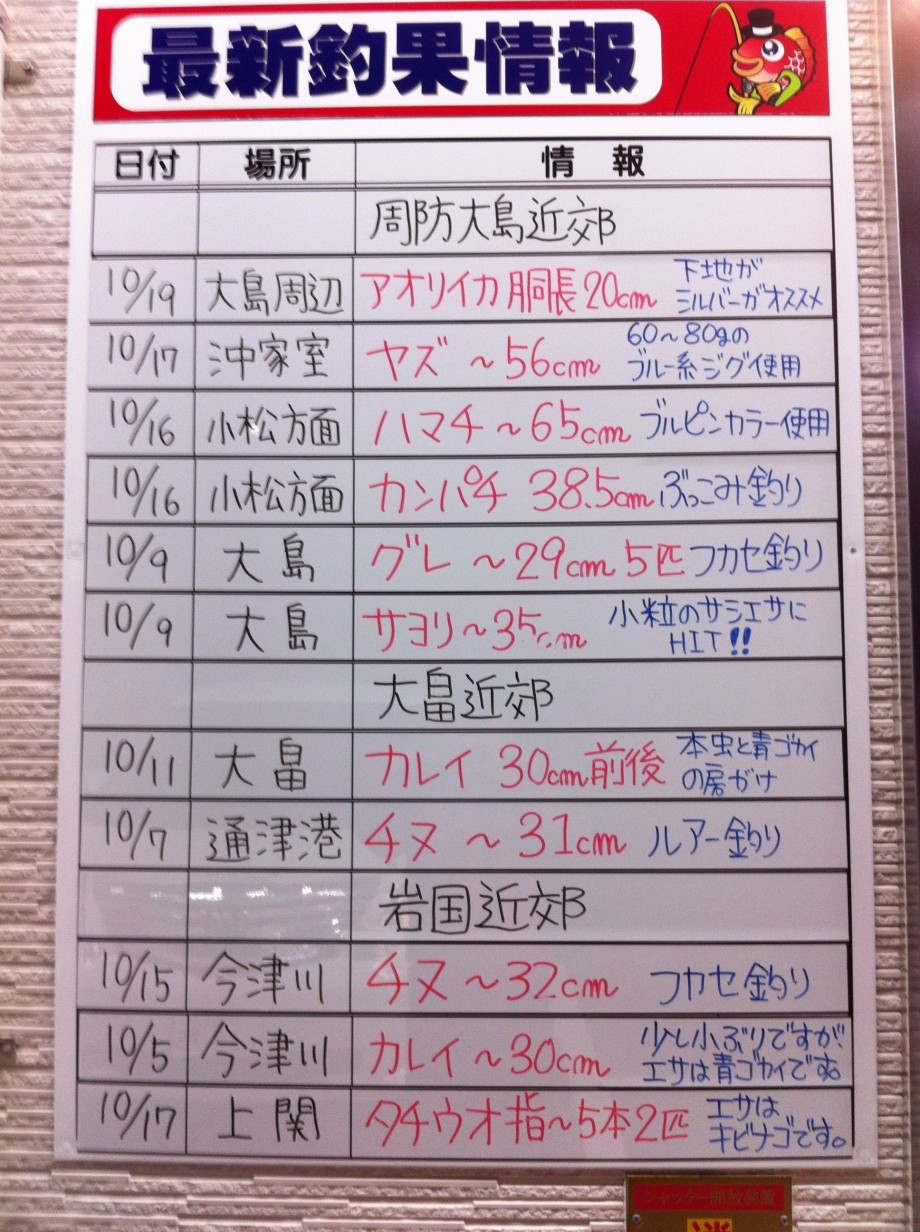 最新釣果情報
日付 場所 情報
周防大島近郊
10/19 大島周辺 アオリイカ 胴長20cm 下地が
シルバーがオススメ
10/17 沖家室 ヤズ ～56cm 60～80gの
ブルー系ジグ使用
10/16 小松方面 ハマチ～65cm ブルピンカラー使用
10/16 小松方面 カンパチ 38.5cm ぶっこみ釣り
10/9 大島 グレ ～29cm 5匹 フカセ釣り
10/9 大島 サヨリ～35cm 小粒のサシエサに
HIT!!
大畠近郊
10/11 大畠 カレイ 30cm前後 本虫と青ゴカイ
の房がけ
10/7 通津港 チヌ ～31cm ルアー釣り
岩国近郊
10/15 今津川 チヌ～32cm フカセ釣り
10/5 今津川 カレイ～30cm 少し小ぶりですが
エサは青ゴカイです。
10/17 上関 タチウオ指～5本2匹 エサは
キビナゴです。